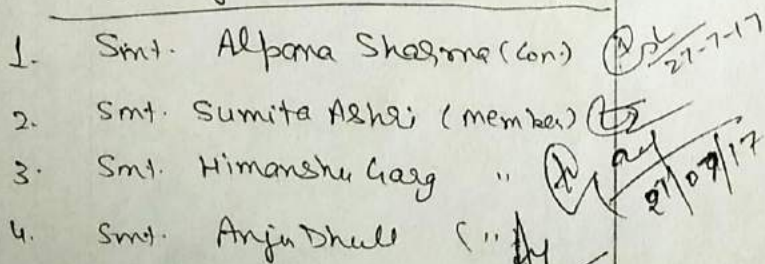 1. Smt. Alpana Sharma (Con) 27-7-17
2. Smt. Sumita Ashri (member)
3. Smt. Himanshu Garg " 27/07/17
4. Smt. Anju Dhull ("